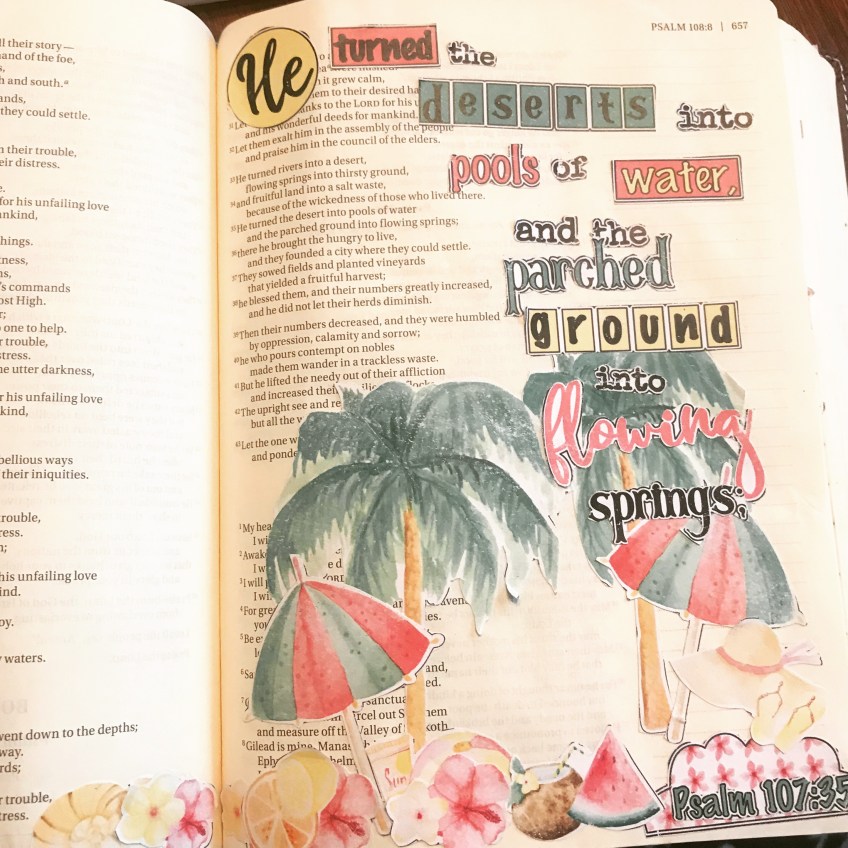 ll their story—
and of the foe,
h and south.
ands,
they could settle.
n their trouble,
eir distress.
e.
for his unfailing love
ankind,
hings.
tness,
ns,
's commands
ost High.
r;
one to help.
r trouble,
stress.
he utter darkness,
r his unfailing love
kind,
bellious ways
their iniquities.
trouble,
ress.
h;
his unfailing love
ind.
oy.
y waters.
went down to the depths;
way.
rds;
r trouble,
tress.
PSALM 108:8 | 657
it grew calm,
em to their desired ha
nks to the LORD for his u
and his wonderful deeds for mankind.
32Let them exalt him in the assembly of the people
and praise him in the council of the elders.
33He turned rivers into a desert,
flowing springs into thirsty ground,
34and fruitful land into a salt waste,
because of the wickedness of those who lived there.
35He turned the desert into pools of water
and the parched ground into flowing springs;
36there he brought the hungry to live,
and they founded a city where they could settle.
37They sowed fields and planted vineyards
that yielded a fruitful harvest;
38he blessed them, and their numbers greatly increased,
and he did not let their herds diminish.
39Then their numbers decreased, and they were humbled
by oppression, calamity and sorrow;
40he who pours contempt on nobles
made them wander in a trackless waste.
41But he lifted the needy out of their affliction
and increased their
42The upright see and re
but all the w
43Let the one w
and ponde
1My hea
I wi
2Awak
I w
3I will p
I wi
4For gre
you
5Be e
6Sa
and,
ed.
and measure off the Valley of
8Gilead is mine, Manas
He turned the
deserts into
pools of water,
and the
parched
ground
into
flowing
springs;
Psalm 107:35